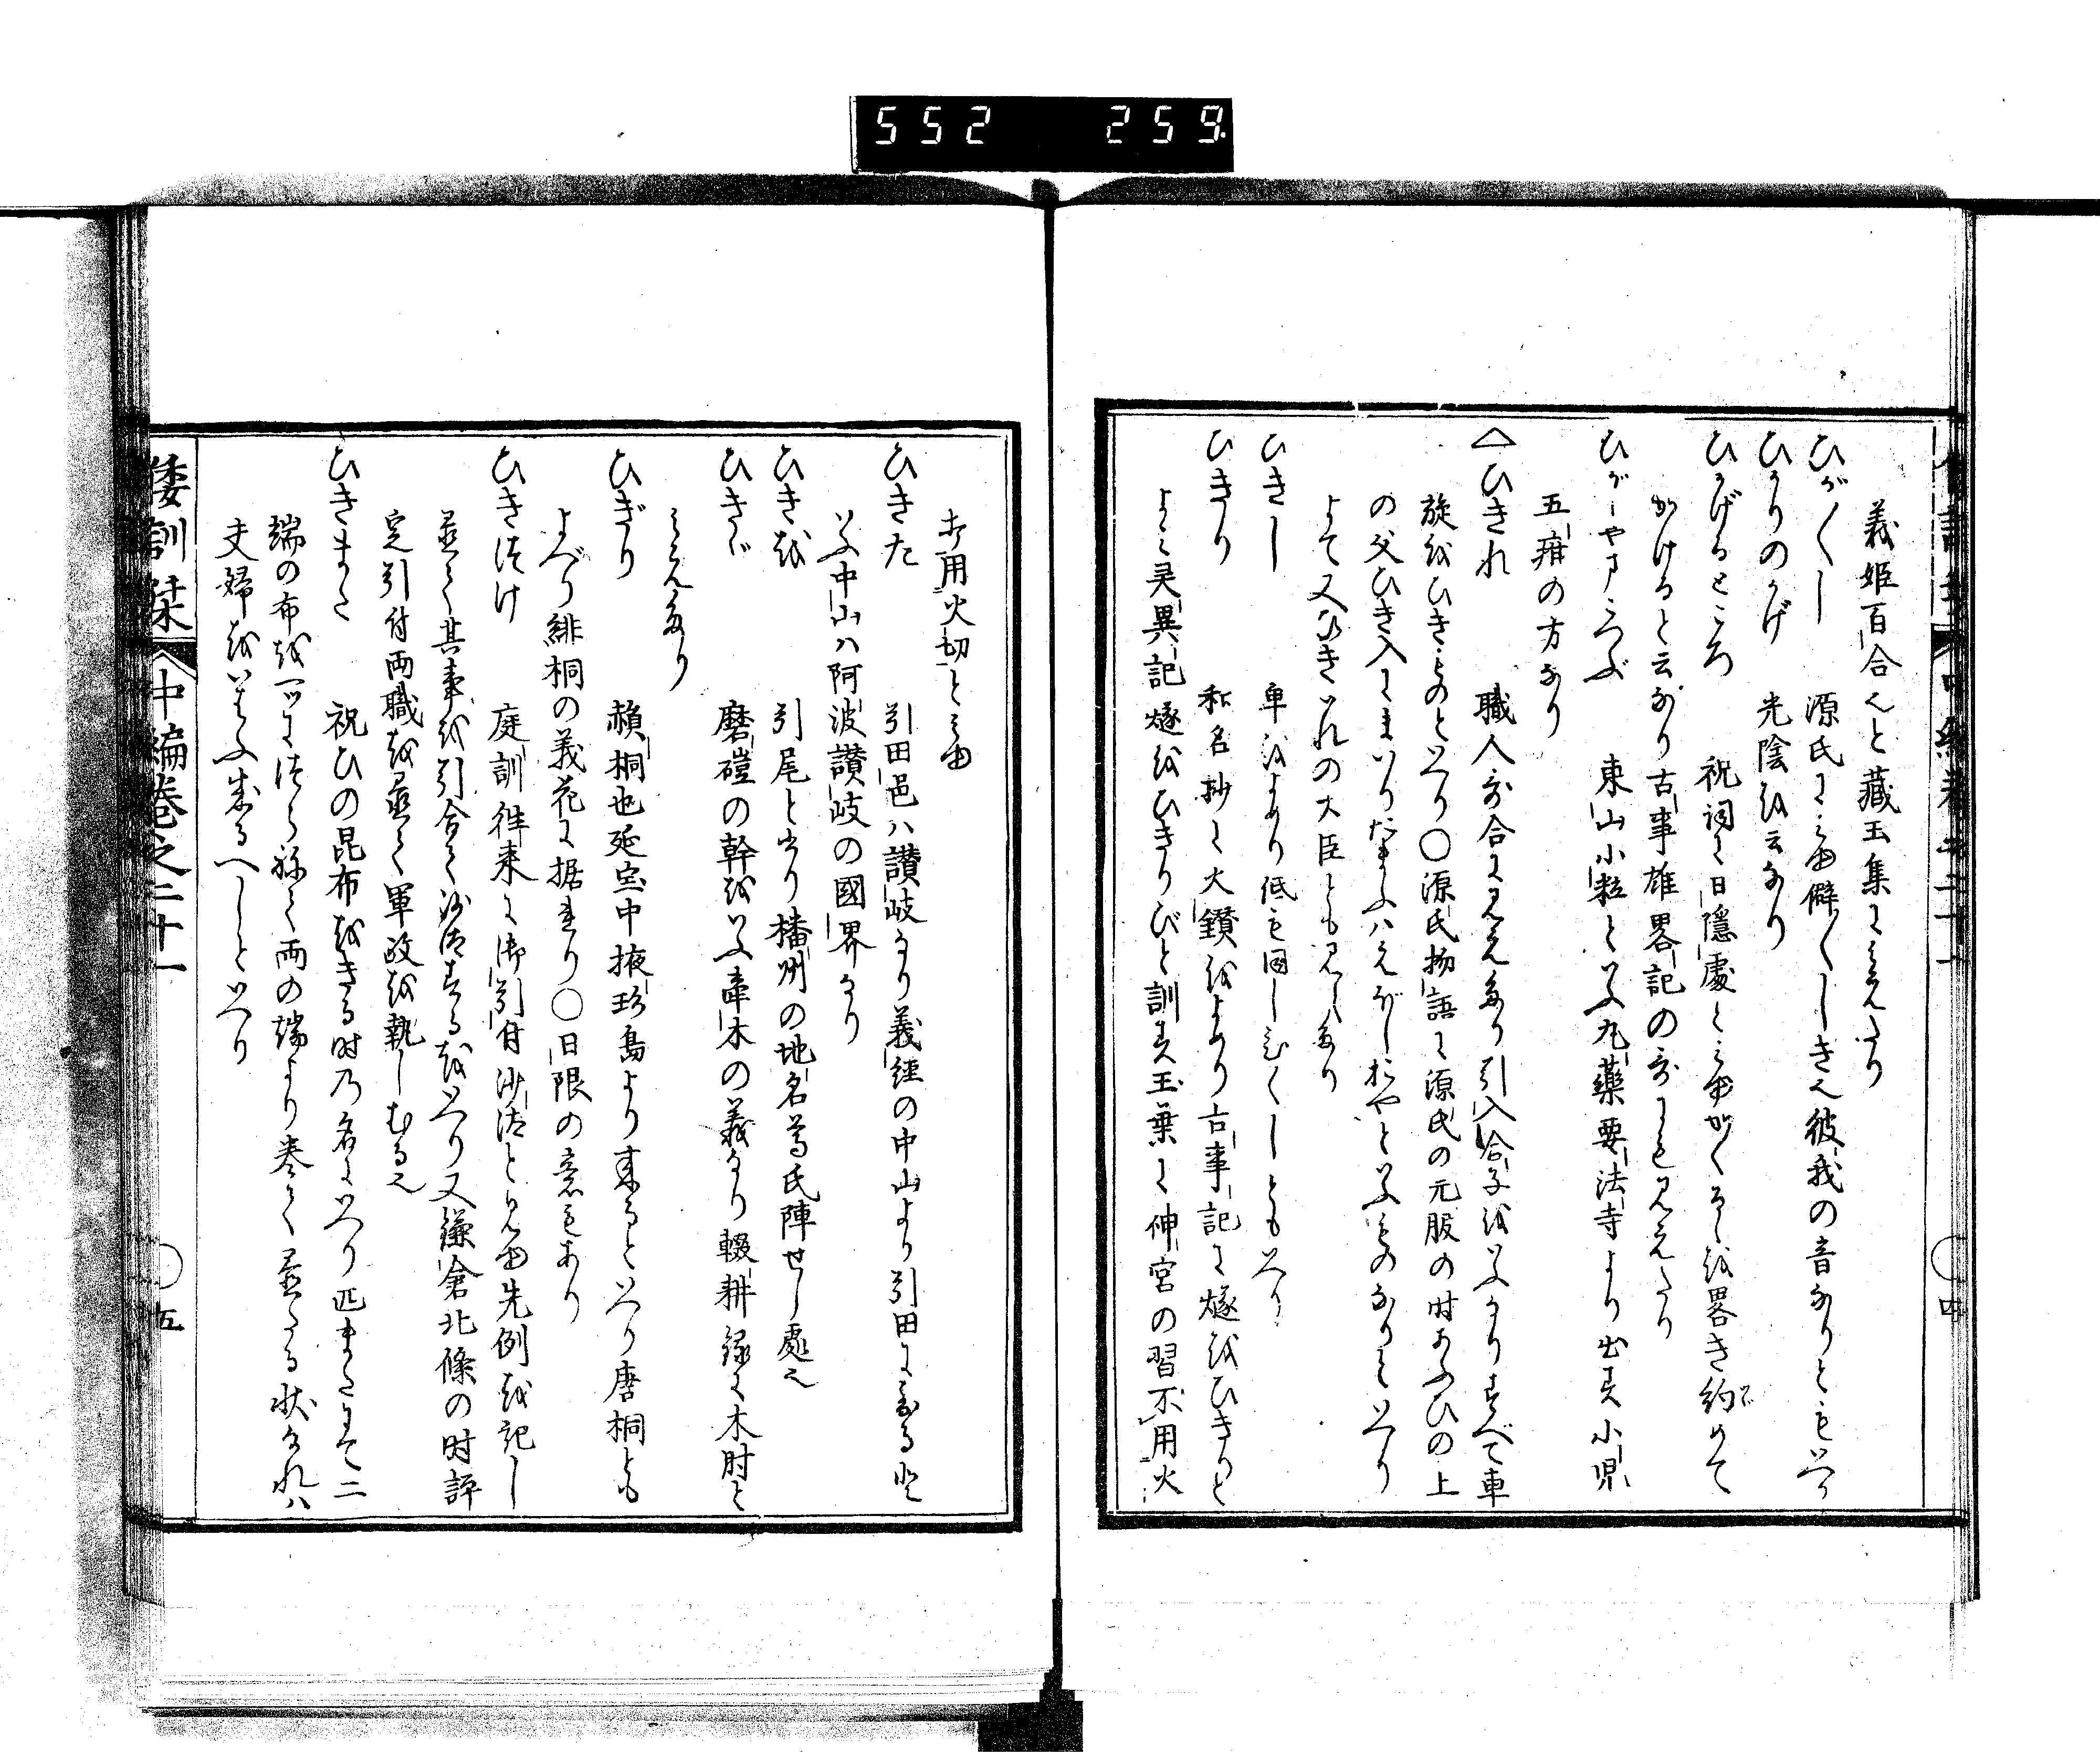 552 259
義姫百合也と蔵玉集にみえたり
ひが〱し 源氏にみゆ僻〱しき也彼我の音なりともいへり
ひかりのかげ 光陰を云なり
ひかげるところ 祝詞に日隠處とみゆかくるを畧き約めて
かけると云なり古事雄畧記の哥にも見えたり
ひがしやまこつぶ 東山小粒といふ丸藥要法寺より出す小児
五疳の方なり
ひきれ 職人哥合に見えたり引入合子をいふなりすべて車
旋をひきものといへり〇源氏物語に源氏の元服の時あふひの上
の父ひき入にまいりたまふハえぼしおやといふものなりといへり
よて又ひきいれの大臣とも見えたり
ひきし 卑をよめり低も同しひくしともいへり
ひきり 和名抄に火鑚をよめり古事記に燧をひきりと
よみ灵異記燧をひきりびと訓す玉葉に神宮の習不用火
打用火切とみゆ
ひきた 引田邑ハ讃岐なり義経の中山より引田にかゝると
いふ中山ハ阿波讃岐の國界なり
ひきを 引尾と書り播州の地名尊氏陣せし處也
ひきぐ 磨磑の幹をいふ牽木の義なり輟耕録に木肘と
みえたり
ひぎり 赬桐也延宝中掖玖島より来るといへり唐桐とも
よべり緋桐の義花に据れり〇日限の意もあり
ひきつけ 庭訓徃来に御引付沙汰と見ゆ先例を記し
置て其事を引合て沙汰するをいへり又鎌倉北條の時評
定引付両職を置て軍政を執しむる也
ひきまた 祝ひの昆布をきる時乃名にいへり匹またにて二
端の布を一ツにつらねて両の端より巻て置たる状なれハ
夫婦をいはふ成るへしといへり
倭訓栞 中編巻之二十一 五